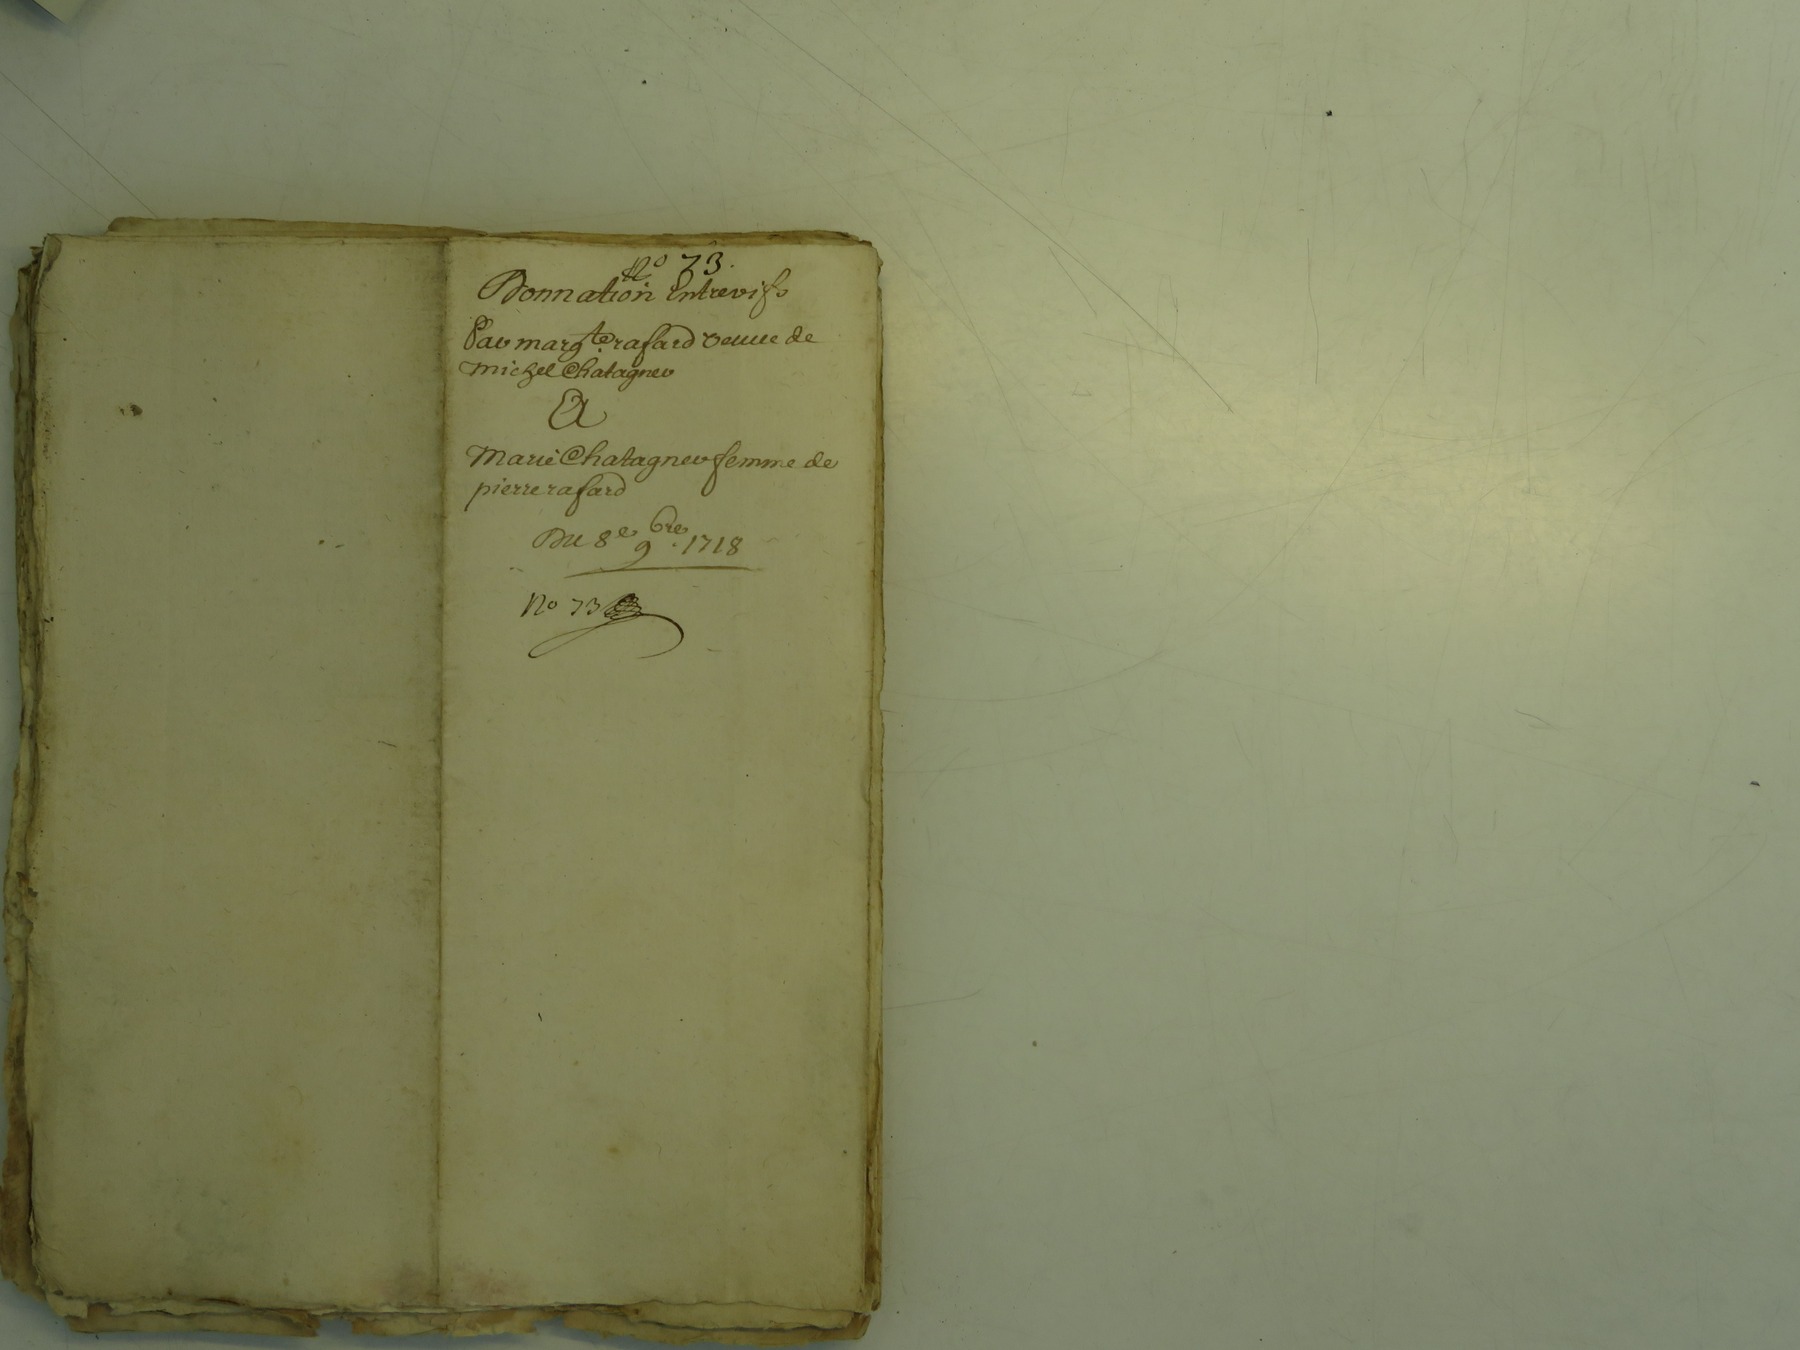 No 73.
Donnation Entrevifs
Par margte rafard veuue de
Michel Chatagner
A
Marie Chatagner femme de
pierre rafard
Du 8e 9bre 1718
No 73